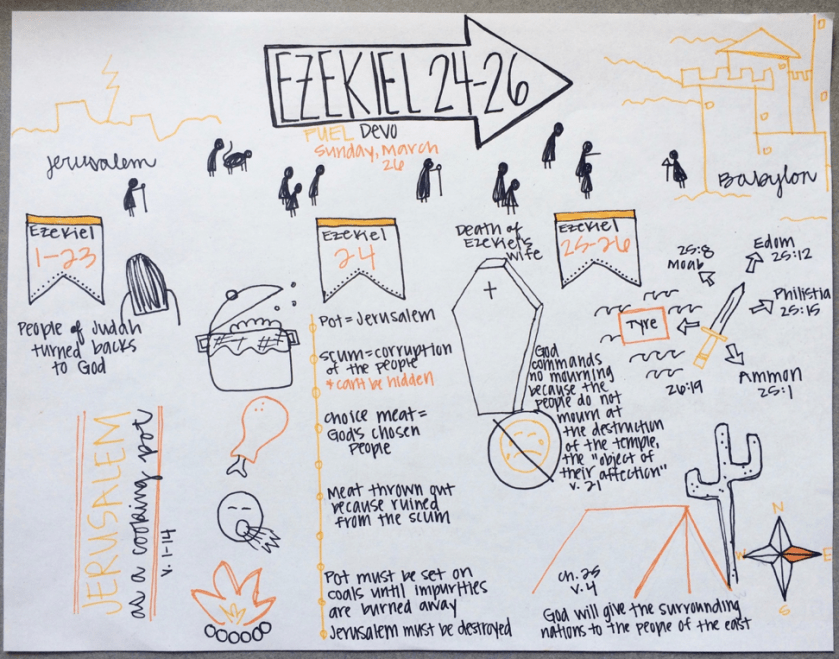 EZEKIEL 24-26
FUEL Devo
Sunday, March
26
Jerusalem
Babylon
Ezekiel
1-23
People of Judah
turned backs
to God
Ezekiel
2-4
Pot = Jerusalem
scum = corruption
of the people
* can't be hidden
choice meat =
God's chosen
People
Meat thrown out
because ruined
from the scum
Pot must be set on
coals until impurities
are burned away
Jerusalem must be destroyed
JERUSALEM
as a cooking pot
v. 1-14
Death of
Ezekiel's
wife
God
commands
no mourning
because the
people do not
mourn at
the destruction
of the temple,
the "object of
their affection"
v. 21
Ezekiel
25-26
25:8
Moab
Edom
25:12
Philistia
25:15
Tyre
Ammon
25:1
26:19
ch. 25
v. 4
God will give the surrounding
nations to the people of the east
N
W
E
S